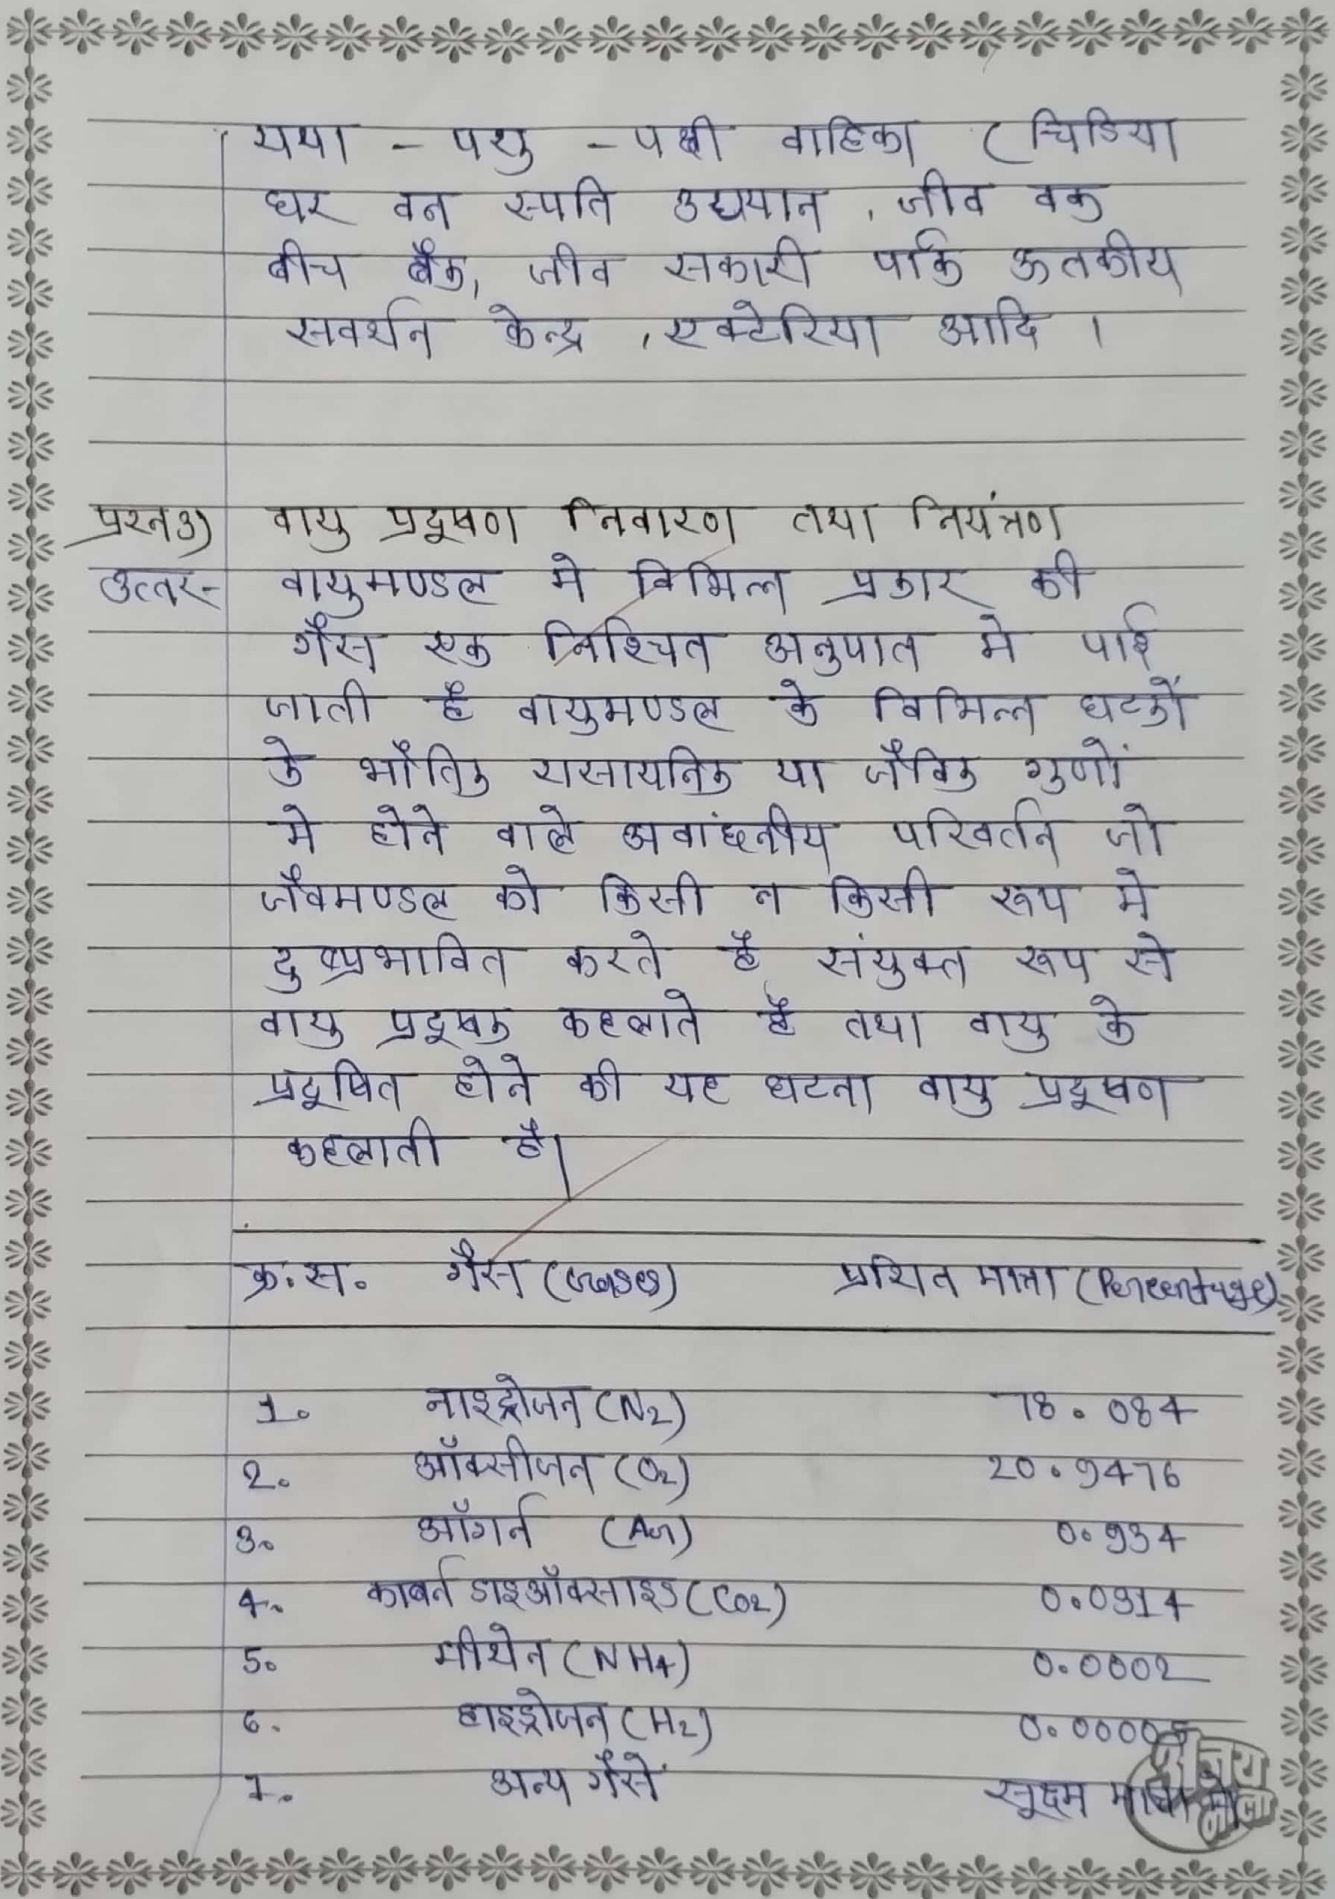 यथा - पशु - पक्षी वाहिका ( चिडिया
घर वन स्पति उद्ययान , जीव वक
बीच बैंक, जीव सकारी पार्क ऊतकीय
सवर्धन केन्द्र , एक्टेरिया आदि ।
प्रश्न3) वायु प्रदूषण निवारण तथा नियंत्रण
उत्तर- वायुमण्डल मे विभिन्न प्रकार की
गैस एक निश्चित अनुपात मे पाई
जाती है वायुमण्डल के विभिन्न घटकों
के भौतिक रासायनिक या जैविक गुणों
मे होने वाले अवांछनीय परिवर्तन जो
जैवमण्डल को किसी न किसी रूप मे
दुष्प्रभावित करते है संयुक्त रूप से
वायु प्रदूषक कहलाते है तथा वायु के
प्रदूषित होने की यह घटना वायु प्रदूषण
कहलाती है।
क्र.स. गैस (Gases) प्रशित मात्रा (Percentage)
1. नाइट्रोजन (N2) 78.084
2. ऑक्सीजन (O2) 20.9476
3. ऑगर्न (Ar) 0.934
4. काबर्न डाइऑक्साइड (CO2) 0.0314
5. मीथेन (NH4) 0.0002
6. हाइड्रोजन (H2) 0.00005
7. अन्य गैसें सूक्ष्म मात्रा मे